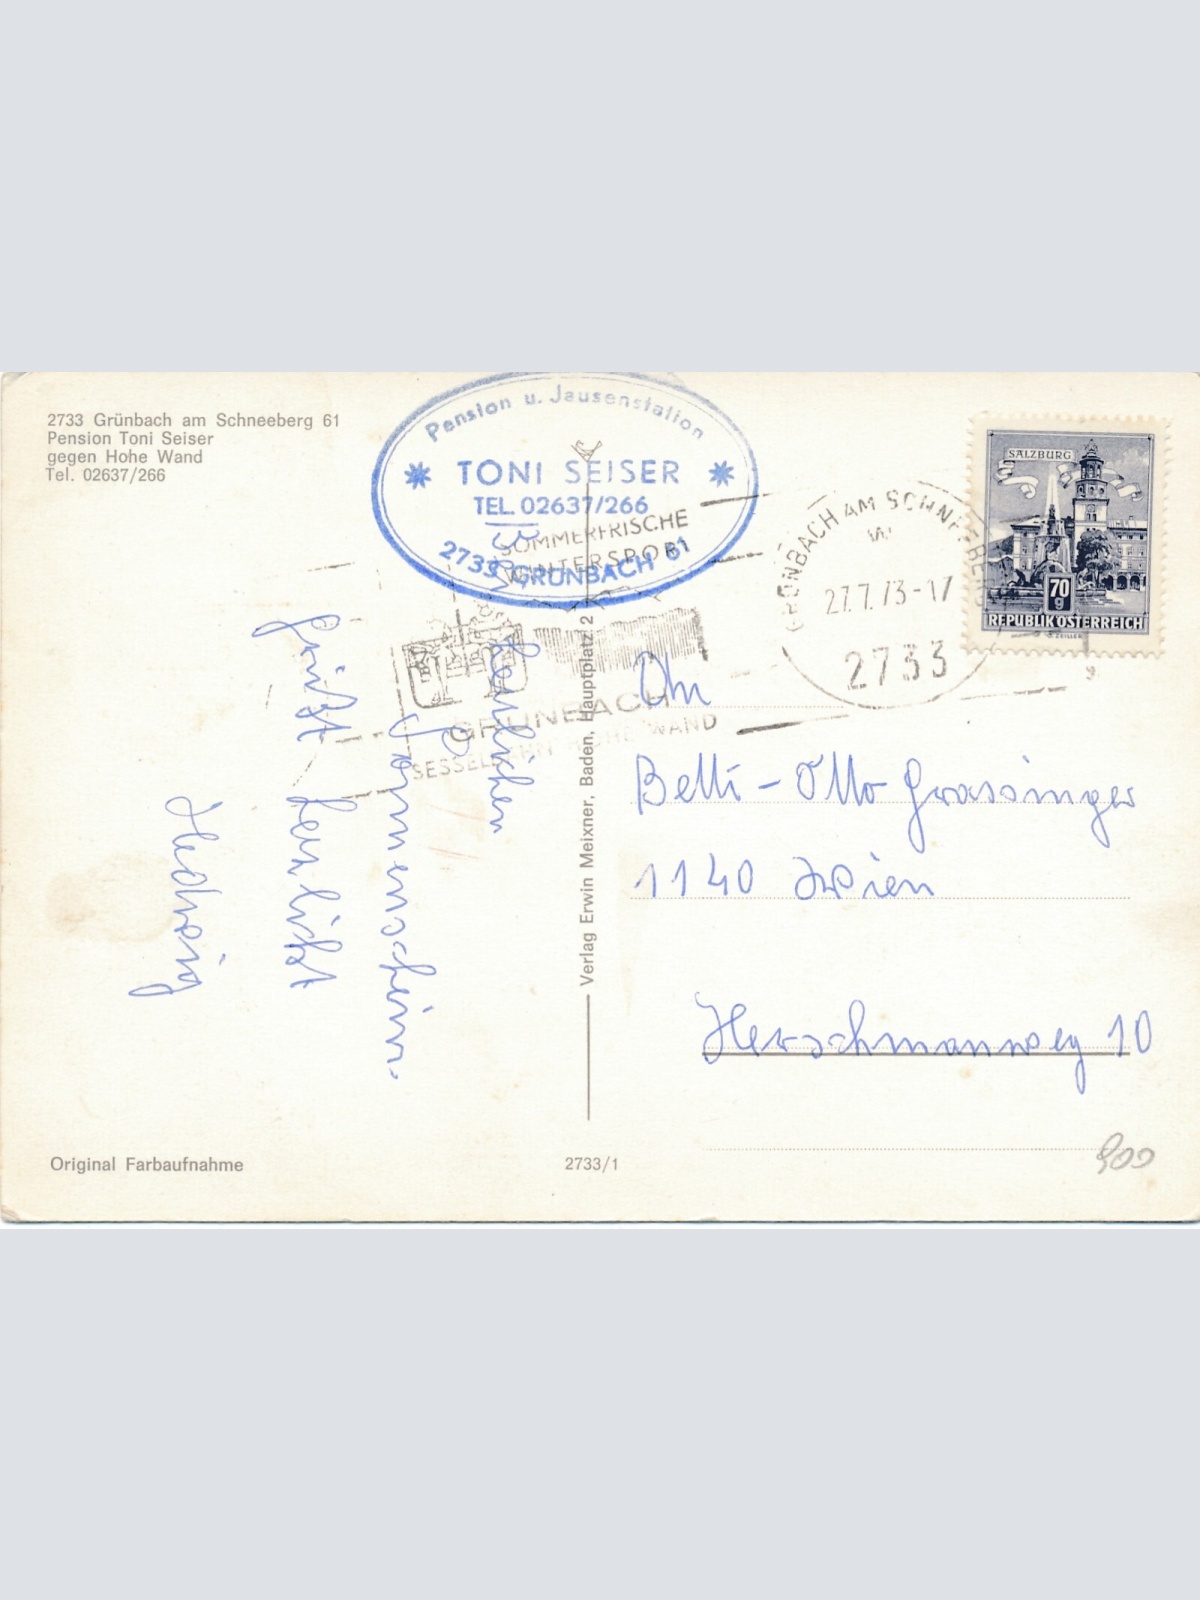 2733 Grünbach am Schneeberg 61
Pension Toni Seiser
gegen Hohe Wand
Tel. 02637/266
Pension u. Jausenstation
TONI SEISER
TEL. 02637/266
2733 GRÜNBACH 61
SOMMERFRISCHE
WINTERSPORT
GRÜNBACH
SESSELBAHN HOHE WAND
GRÜNBACH AM SCHNEEBERG
27.7.73-17
2733
SALZBURG
70
g
REPUBLIK ÖSTERREICH
Bei
herrlichen
Sonnenschein
grüßt herzlichst
Hedwig
Verlag Erwin Meixner, Baden, Hauptplatz 2
An
Betti - Otto Grassinger
1140 Wien
Herschmannweg 10
Original Farbaufnahme
2733/1
900